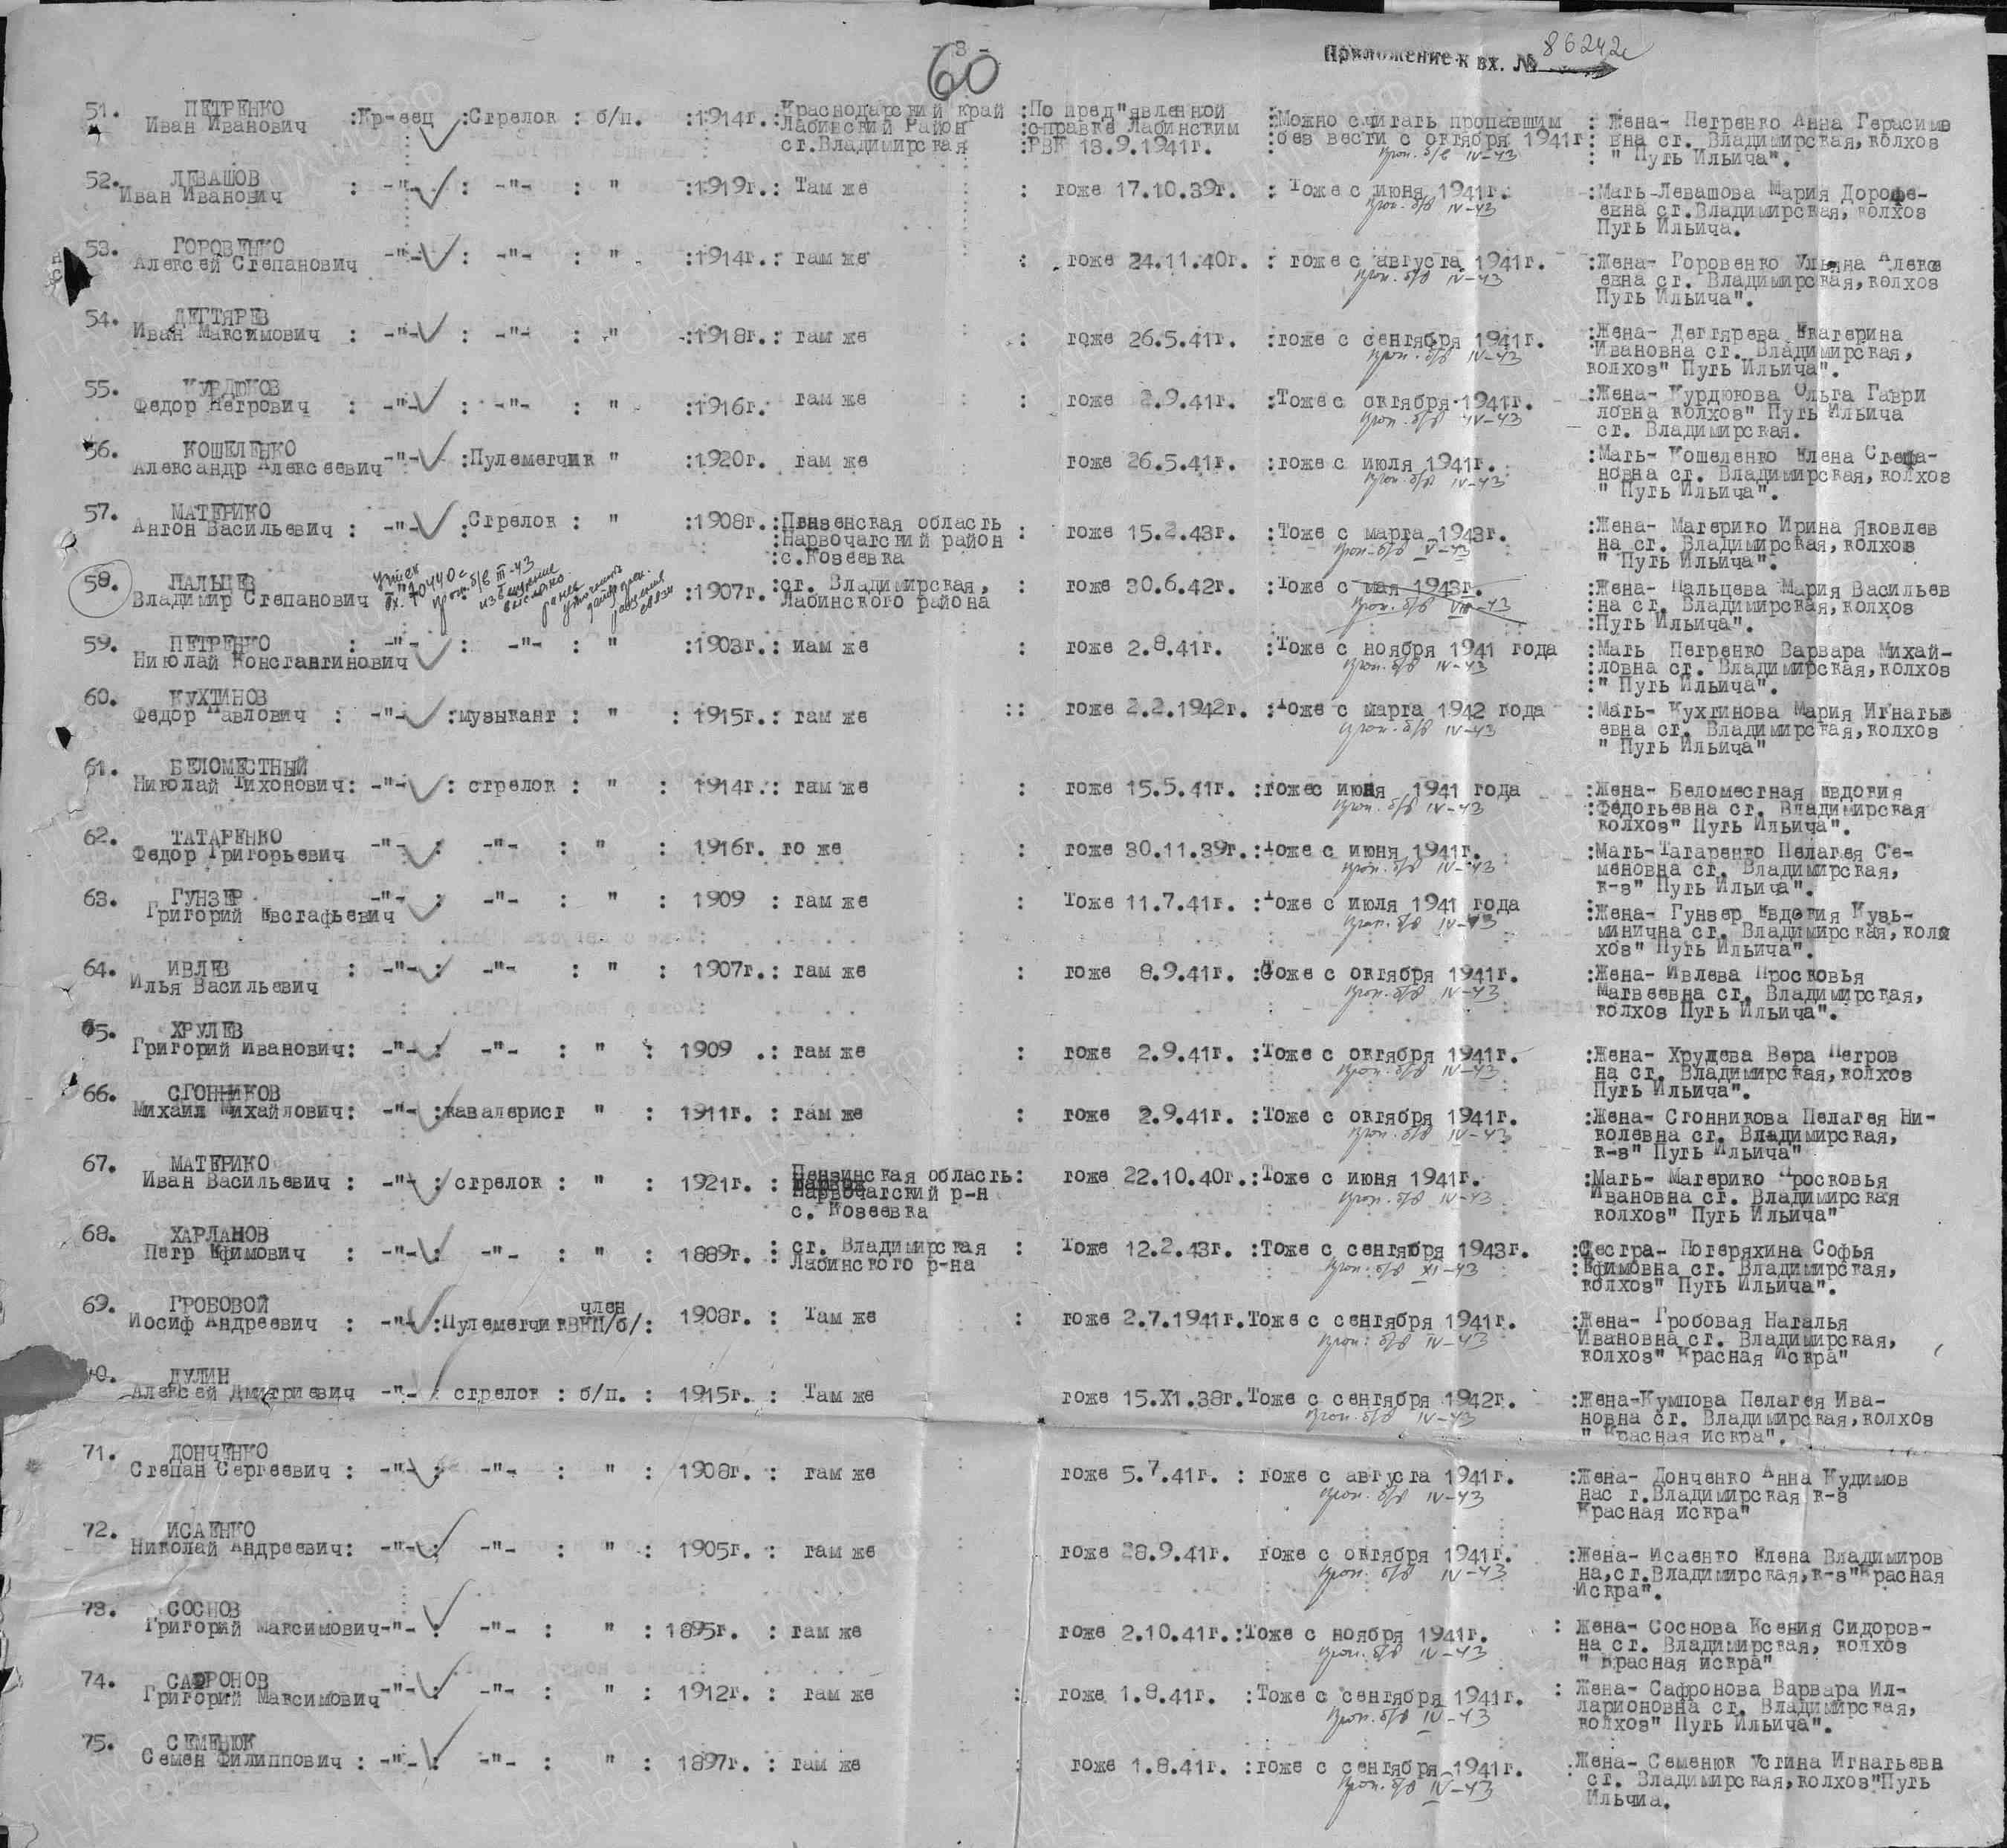 - 8 -
60
Приложение к вх. № 86242с
51. ПЕТРЕНКО
Иван Иванович :Кр-еец :Стрелок : б/п. :1914г. :Краснодарский край :По пред"явленной :Можно считать пропавшим : Жена- Петренко Анна Герасимо
Лабинский Район :справке Лабинским :без вести с октября 1941г: вна ст. Владимирская, колхоз
ст.Владимирская :РВК 13.9.1941г. : " Путь Ильича".
проп. б/в IV-43
52. ЛЕВАШОВ
Иван Иванович : -"- : -"- : " :1919г.: Там же : тоже 17.10.39г. : Тоже с июня 1941г. :Мать-Левашова Мария Дорофе-
проп. б/в IV-43
евна ст.Владимирская, колхоз
Путь Ильича.
53. ГОРОВЕНКО
Алексей Степанович -"- : -"- : " :1914г.: там же : тоже 24.11.40г. : тоже с августа 1941г. :Жена- Горовенко Ульяна Алексе
проп. б/в IV-43
евна ст. Владимирская, колхоз
Путь Ильича".
54. ДЕГТЯРЕВ
Иван Максимович : -"- : -"- : " :1918г.: там же : тоже 26.5.41г. :тоже с сентября 1941г. :Жена- Дегтярева Екатерина
проп. б/в IV-43
Ивановна ст. Владимирская,
колхоз" Путь Ильича".
55. КУРДЮКОВ
Федор Петрович : -"- : -"- : " :1916г. там же : тоже 2.9.41г. :Тоже с октября 1941г. :Жена- Курдюкова Ольга Гаври
проп. б/в IV-43
ловна колхоз" Путь Ильича
ст. Владимирская.
56. КОШЕЛЕНКО
Александр Алексеевич -"- :Пулеметчик " :1920г. там же тоже 26.5.41г. :тоже с июля 1941г. :Мать- Кошеленко Елена Стефа-
проп. б/в IV-43
новна ст. Владимирская, колхоз
" Путь Ильича".
57. МАТЕРИКО
Антон Васильевич : -"- :Стрелок : " :1908г.:Пензенская область : тоже 15.2.43г. :Тоже с марта 1943г. :Жена- Материко Ирина Яковлев
:Нарвочатский район
проп. б/в V-43
на ст. Владимирская, колхоз
:с.Козеевка
" Путь Ильича".
58. ПАЛЬЦЕВ
Владимир Степанович -"- :1907г.:ст. Владимирская, : тоже 30.6.42г. :Тоже с мая 1943г. :Жена- Пальцева Мария Васильев
вх. 70440с проп. б/в III-43
Лабинского района
проп. б/в VIII-43
:на ст. Владимирская, колхоз
:Путь Ильича".
59. ПЕТРЕНКО
Николай Константинович : -"- : -"- : " :1903г.: иам же : тоже 2.8.41г. :Тоже с ноября 1941 года :Мать Петренко Варвара Михай-
проп. б/в IV-43
:ловна ст. Владимирская, колхоз
:" Путь Ильича".
60. КУХТИНОВ
Федор Павлович : -"- :музыкант : " : 1915г.: там же :: тоже 2.2.1942г. :Тоже с марта 1942 года :Мать- Кухтинова Мария Игнатье
проп. б/в IV-43
евна ст. Владимирская, колхоз
" Путь Ильича"
61. БЕЛОМЕСТНЫЙ
Николай Тихонович: -"- : стрелок : " : 1914г.: там же : тоже 15.5.41г. :тоже с июня 1941 года :Жена- Беломестная Евдокия
проп. б/в IV-43
:Федотьевна ст. Владимирская
колхоз" Путь Ильича".
62. ТАТАРЕНКО
Федор Григорьевич -"- : -"- : " : 1916г. то же : тоже 30.11.39г.:Тоже с июня 1941г. :Мать-Татаренко Пелагея Се-
проп. б/в IV-43
меновна ст. Владимирская,
к-з" Путь Ильича".
63. ГУНЗЕР
Григорий Евстафьевич -"- : -"- : " : 1909 : там же : Тоже 11.7.41г. :Тоже с июля 1941 года :Жена- Гунзер Евдокия Кузь-
проп. б/в IV-43
минична ст. Владимирская, кол
хоз" Путь Ильича".
64. ИВЛЕВ
Илья Васильевич : -"- : -"- : " : 1907г.: там же : тоже 8.9.41г. :Тоже с октября 1941г. :Жена- Ивлева Просковья
проп. б/в IV-43
Матвеевна ст. Владимирская,
колхоз Путь Ильича".
65. ХРУЛЕВ
Григорий Иванович: -"- : -"- : " : 1909 .: там же : тоже 2.9.41г. :Тоже с октября 1941г. :Жена- Хрулева Вера Петров
проп. б/в IV-43
на ст. Владимирская, колхоз
Путь Ильича".
66. СГОННИКОВ
Михаил Михайлович: -"- :кавалерист " : 1911г. : там же : тоже 2.9.41г. :Тоже с октября 1941г. :Жена- Сгонникова Пелагея Ни-
проп. б/в IV-43
колевна ст. Владимирская,
к-з" Путь Ильича"
67. МАТЕРИКО
Иван Васильевич : -"- : стрелок : " : 1921г. : Пензинская область: тоже 22.10.40г.:Тоже с июня 1941г. :Мать- Материко Просковья
Нарвочатский р-н
проп. б/в IV-43
Ивановна ст. Владимирская
с. Козеевка
колхоз" Путь Ильича"
68. ХАРЛАНОВ
Петр Ефимович : -"- : -"- : " : 1889г. : ст. Владимирская : Тоже 12.2.43г. :Тоже с сентября 1943г. :Сестра- Потеряхина Софья
Лабинского р-на
проп. б/в XI-43
:Ефимовна ст. Владимирская,
колхоз" Путь Ильича".
69. ГРОБОВОЙ
Иосиф Андреевич : -"- :Пулеметчик член ВКП/б/: 1908г. : Там же : тоже 2.7.1941г.Тоже с сентября 1941г. :Жена- Гробовой Наталья
проп. б/в IV-43
Ивановна ст. Владимирская,
колхоз" Красная Искра"
70. ДУЛИН
Алексей Дмитриевич -"- : стрелок : б/п. : 1915г. : Там же тоже 15.X1.38г.Тоже с сентября 1942г. :Жена-Кумпова Пелагея Ива-
проп. б/в IV-43
новна ст. Владимирская, колхоз
" Красная искра".
71. ДОНЧЕНКО
Степан Сергеевич : -"- : -"- : " : 1908г. : там же тоже 5.7.41г. : тоже с августа 1941г. :Жена- Донченко Анна Кудимов
проп. б/в IV-43
нас т.Владимирская к-з
Красная искра"
72. ИСАЕНКО
Николай Андреевич: -"- : -"- : " : 1905г. : там же тоже 28.9.41г. тоже с октября 1941г. :Жена- Исаенко Елена Владимиров
проп. б/в IV-43
на,ст.Владимирская,к-з"Красная
Искра".
73. СОСНОВ
Григорий Максимович-"- : -"- : " : 1895г. : там же тоже 2.10.41г.:Тоже с ноября 1941г. : Жена- Соснова Ксения Сидоров-
проп. б/в IV-43
на ст. Владимирская, колхоз
" Красная искра"
74. САФРОНОВ
Григорий Максимович -"- : -"- : " : 1912г. : там же : тоже 1.8.41г. :Тоже с сентября 1941г. : Жена- Сафронова Варвара Ил-
проп. б/в IV-43
ларионовна ст. Владимирская,
колхоз" Путь Ильича".
75. СЕМЕНЮК
Семен Филиппович : -"- : -"- : " : 1897г. : там же : тоже 1.8.41г. :тоже с сентября 1941г. :Жена- Семенюк Устина Игнатьевн
проп. б/в IV-43
ст. Владимирская,колхоз"Путь
Ильчиа.